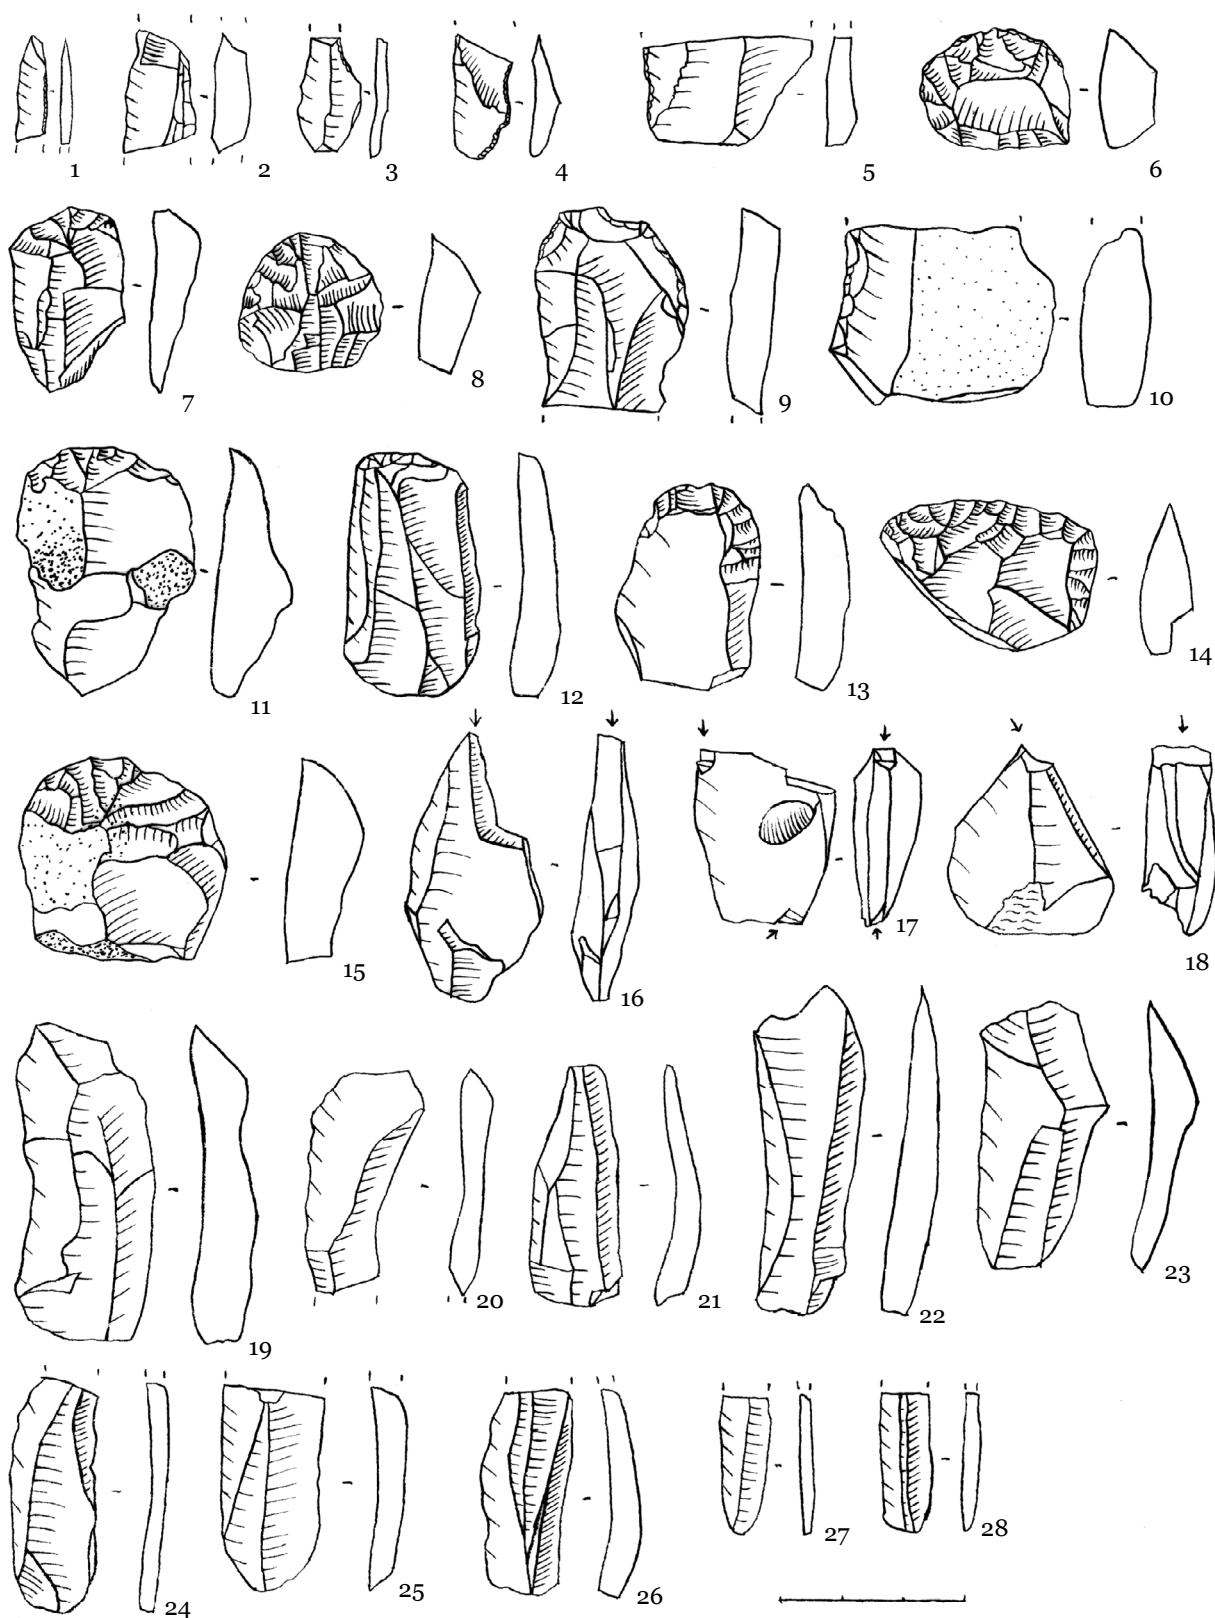 1 2 3 4 5 6
7 8 9 10
11 12 13 14
15 16 17 18
19 20 21 22 23
24 25 26 27 28